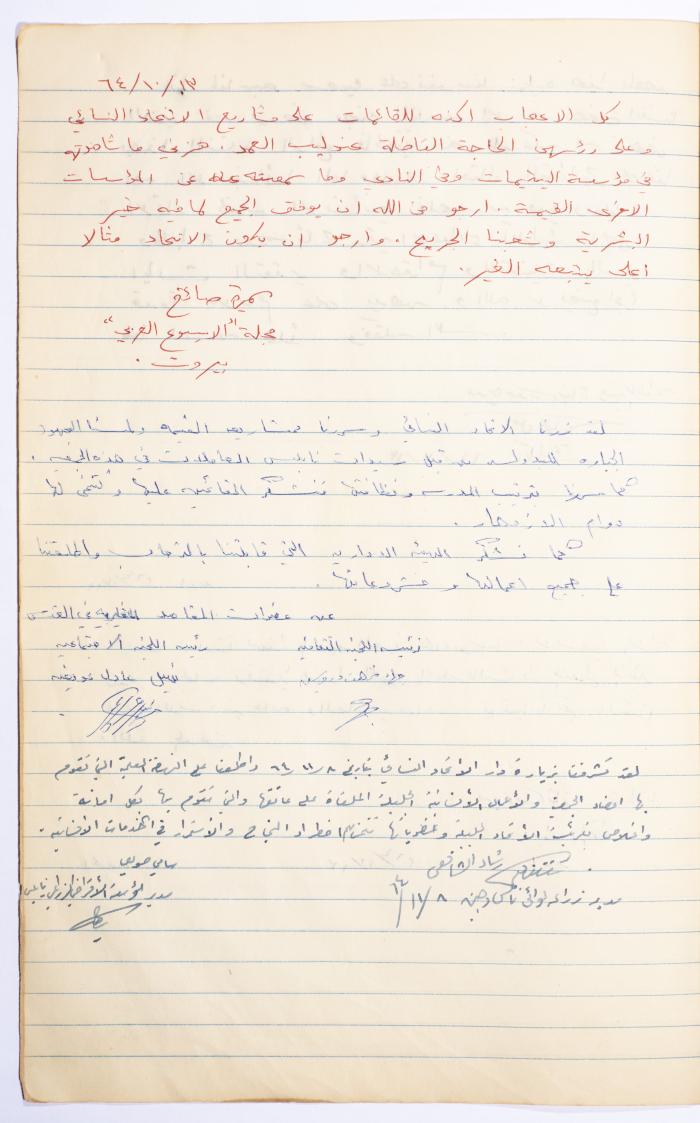 ٦٤/١٠/١٣
كل الاعجاب اكنه للقائمات على مشاريع الاتحاد النسائي
وعلى رأسهن الحاجة الفاضلة عندليب العمد. هزني ما شاهدته
في مؤسسة اليتيمات وفي النادي وما سمعته عن المؤسسات
الاخرى القيمة. ارجو من الله ان يوفق الجميع لما فيه خير
البشرية وشعبنا الجريح. وارجو ان يكون الاتحاد مثالا
اعلى يتبعه الغير.
سميرة صائغ
مجلة "الاسبوع العربي"
بيروت.
لقد زرنا الاتحاد النسائي وسررنا بمشاريعه القيمه ولمسنا الجهود
الجباره المبذوله من قبل سيدات نابلس العاملات في هذه الجمعيه.
كما سرنا ترتيب المدرسه ونظافتها فنشكر القائمين عليها ونتمنى لها
دوام الازدهار.
كما نشكر الهيئة الاداريه التي قابلتنا بالترحاب واطلعتنا
على جميع اعمالها ومشروعاتها.
عن عضوات المقاصد الخيريه في القدس
رئيسه اللجنه الثقافيه رئيسه اللجنه الاجتماعيه
عادل
لقد تشرفنا بزيارة دار الاتحاد النسائي بتاريخ ٦٤/١١/٨ واطلعنا على النهضة العلمية التي تقوم
بها اعضاء الجمعية والاعمال الانسانية الجليلة الملقاة على عاتقها والتي تقوم بها بكل امانة
واخلاص فلرئيسة الاتحاد الجليلة وعضوياتها نتمنى اضطراد النجاح والاستمرار في الخدمات الانسانية.
رشاد الشافعي سامي
مدير زراعة لوائي نابلس وجنين ٦٤/١١/٨ مدير مؤسسة الاقراض الزراعي نابلس